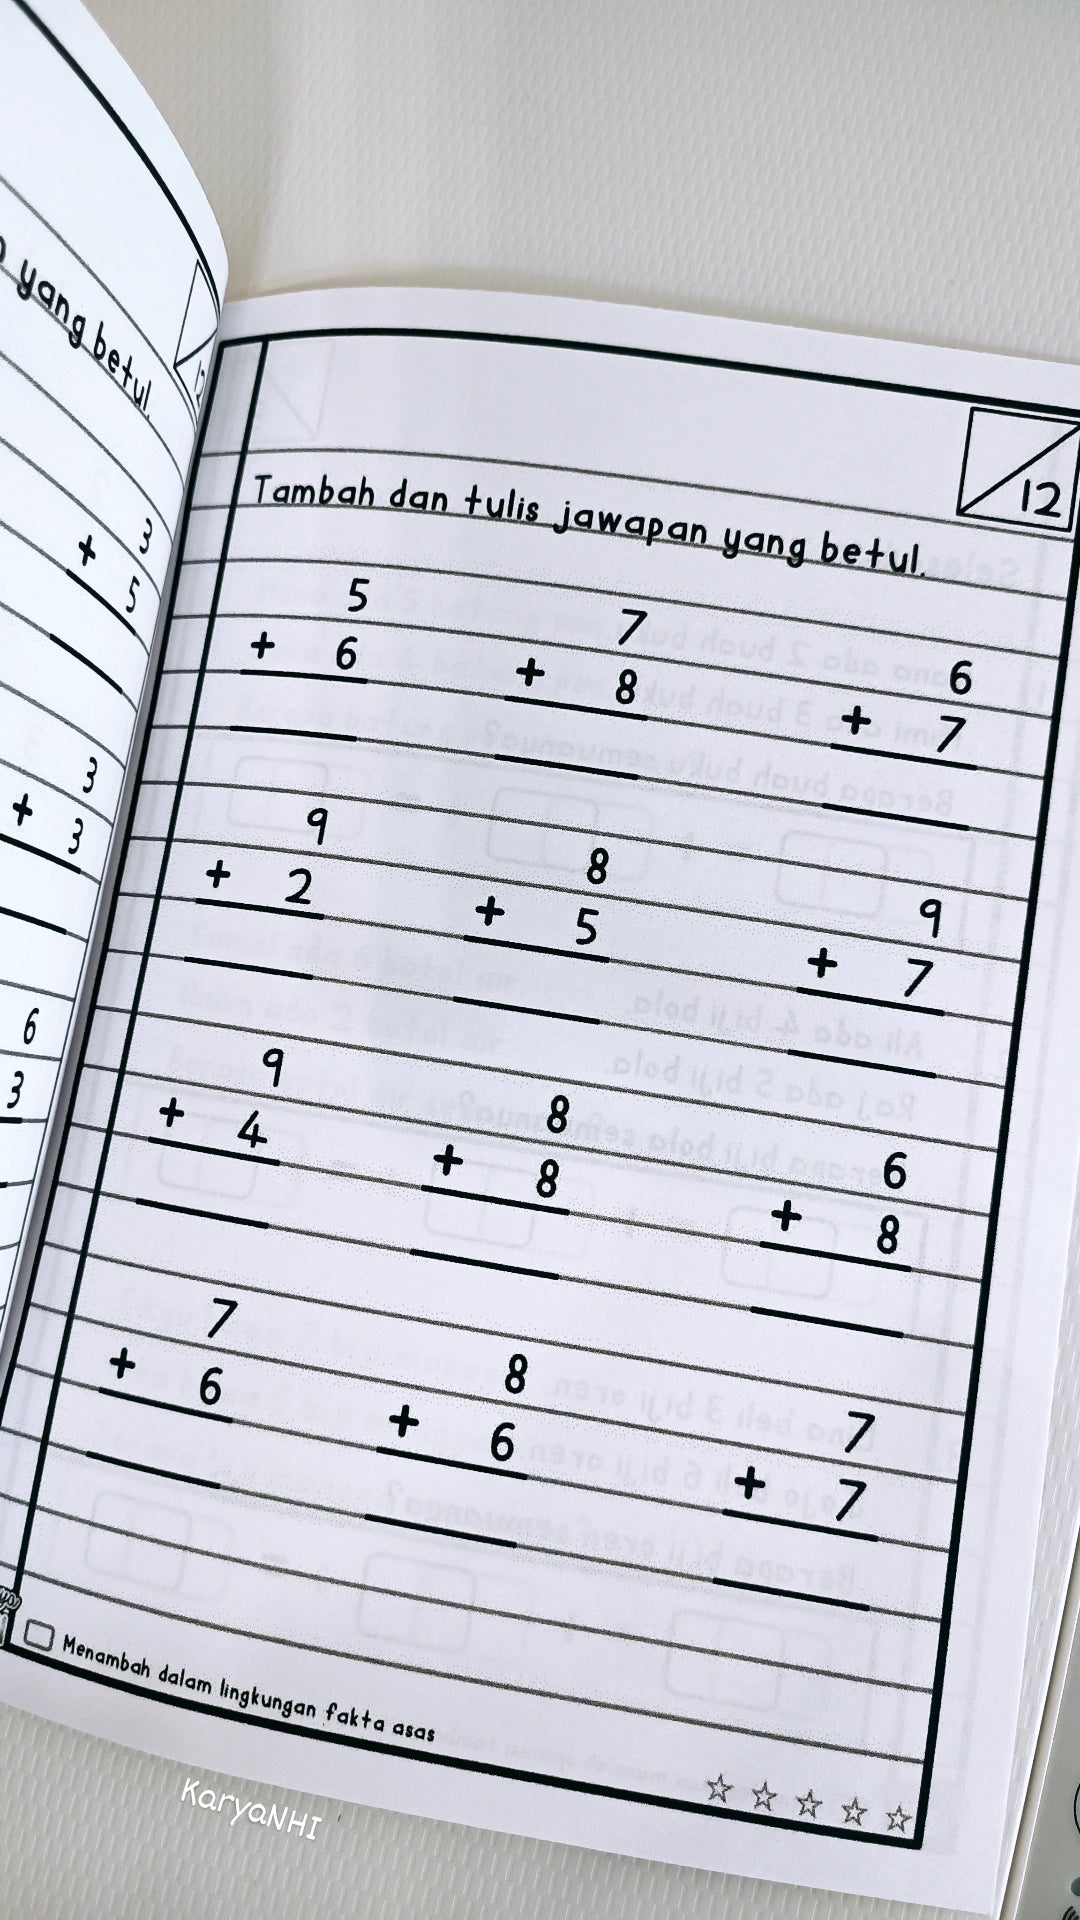 yang betul.
3
+ 5
3
+ 3
6
3
12
Tambah dan tulis jawapan yang betul.
5 7 6
+ 6 + 8 + 7
9 8 9
+ 2 + 5 + 7
9 8 6
+ 4 + 8 + 8
7 8 7
+ 6 + 6 + 7
Menambah dalam lingkungan fakta asas
KaryaNHI